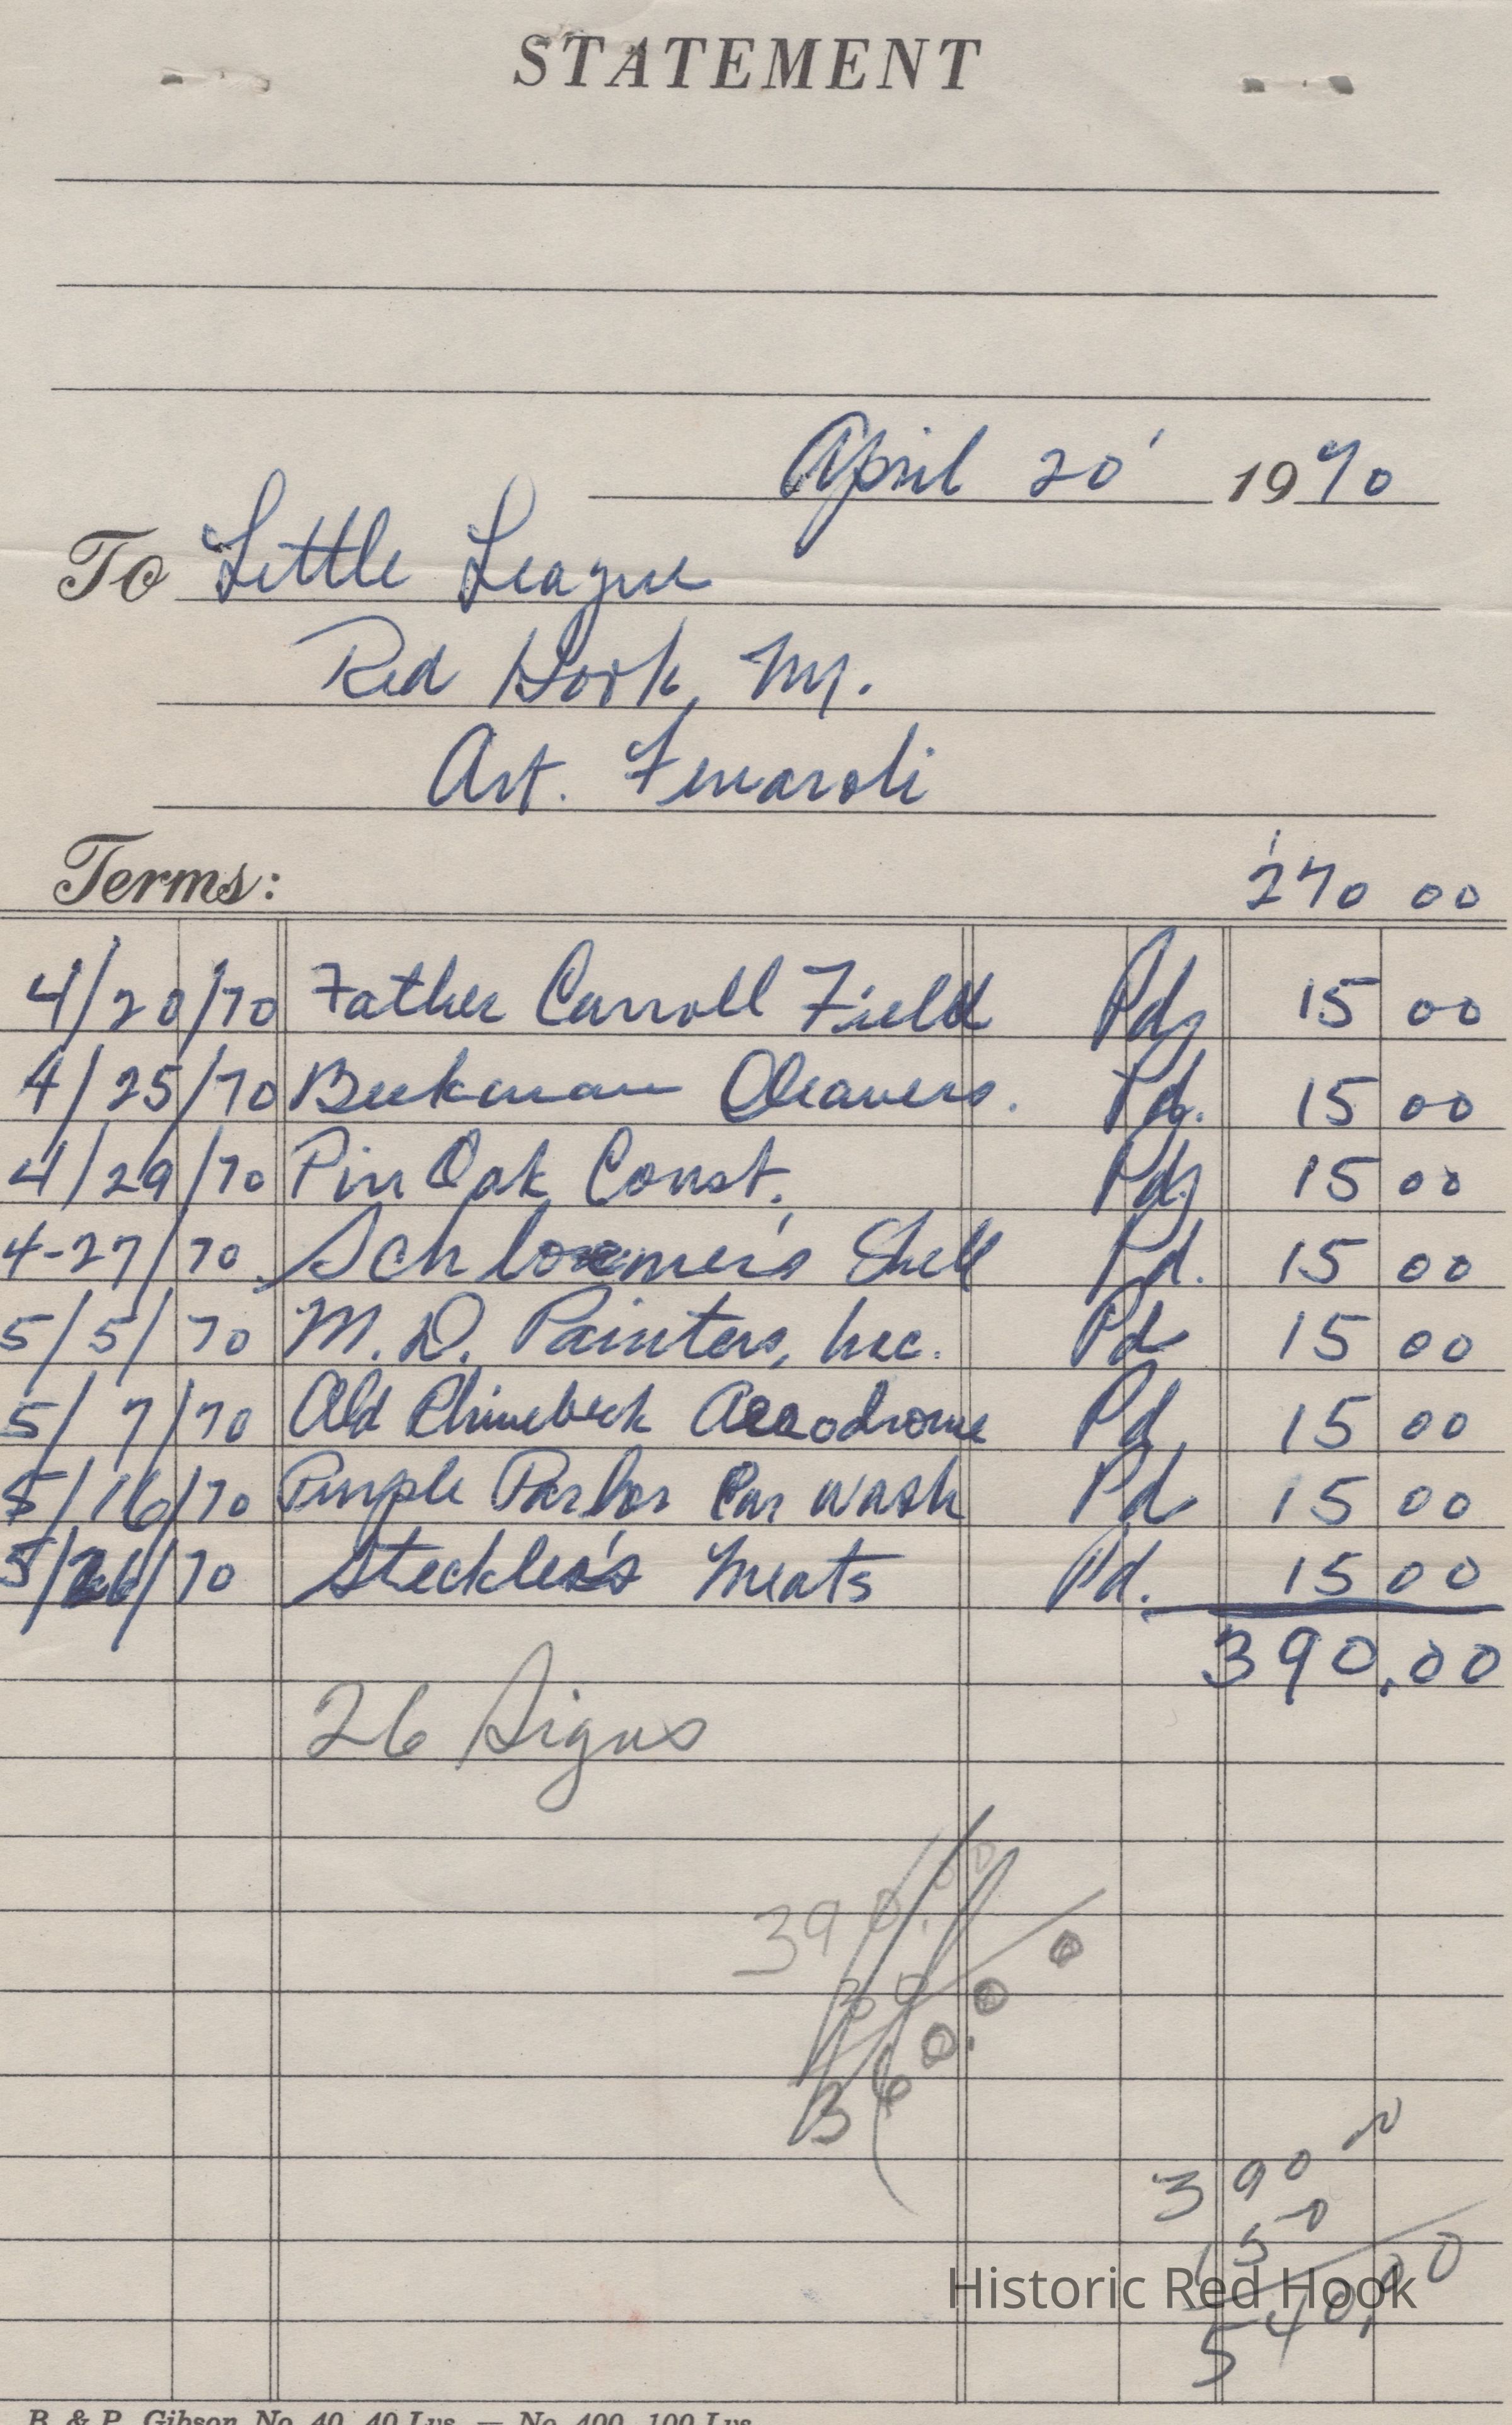 STATEMENT
April 20' 1970
To Little League
Red Hook, NY.
Art. Ferraroli
Terms: 270 00
4/20/70 Father Carroll Field Pd 15 00
4/25/70 Beekman Cleaners. Pd. 15 00
4/29/70 Pin Oak Const. Pd 15 00
4-27/70 Schloemer's Shell Pd. 15 00
5/5/70 M. D. Painters, Inc. Pd 15 00
5/7/70 Old Rhinebeck Aerodrome Pd 15 00
5/16/70 Purple Parlor Car Wash Pd 15 00
5/26/70 Steckler's Meats Pd. 15 00
390.00
26 Signs
390.00
30
360.00
390 00
150
540.00
Historic Red Hook
B. & P. Gibson No. 40, 40 Lvs. — No. 400, 100 Lvs.